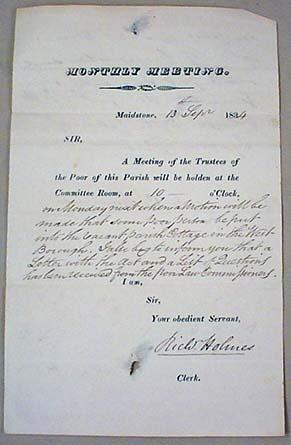 MONTHLY MEETING.
Maidstone, 13th Sepr 1834
SIR,
A Meeting of the Trustees of
the Poor of this Parish will be holden at the
Committee Room, at 10 — o'Clock,
on Monday next when a Motion will be
made that some poor person be put
into the vacant Parish Cottage in the West
Borough. I also beg to inform you that a
Letter with the Act and a List of Questions
has been received from the poor Law Commissioners.
I am,
Sir,
Your obedient Servant,
Richd Holmes
Clerk.